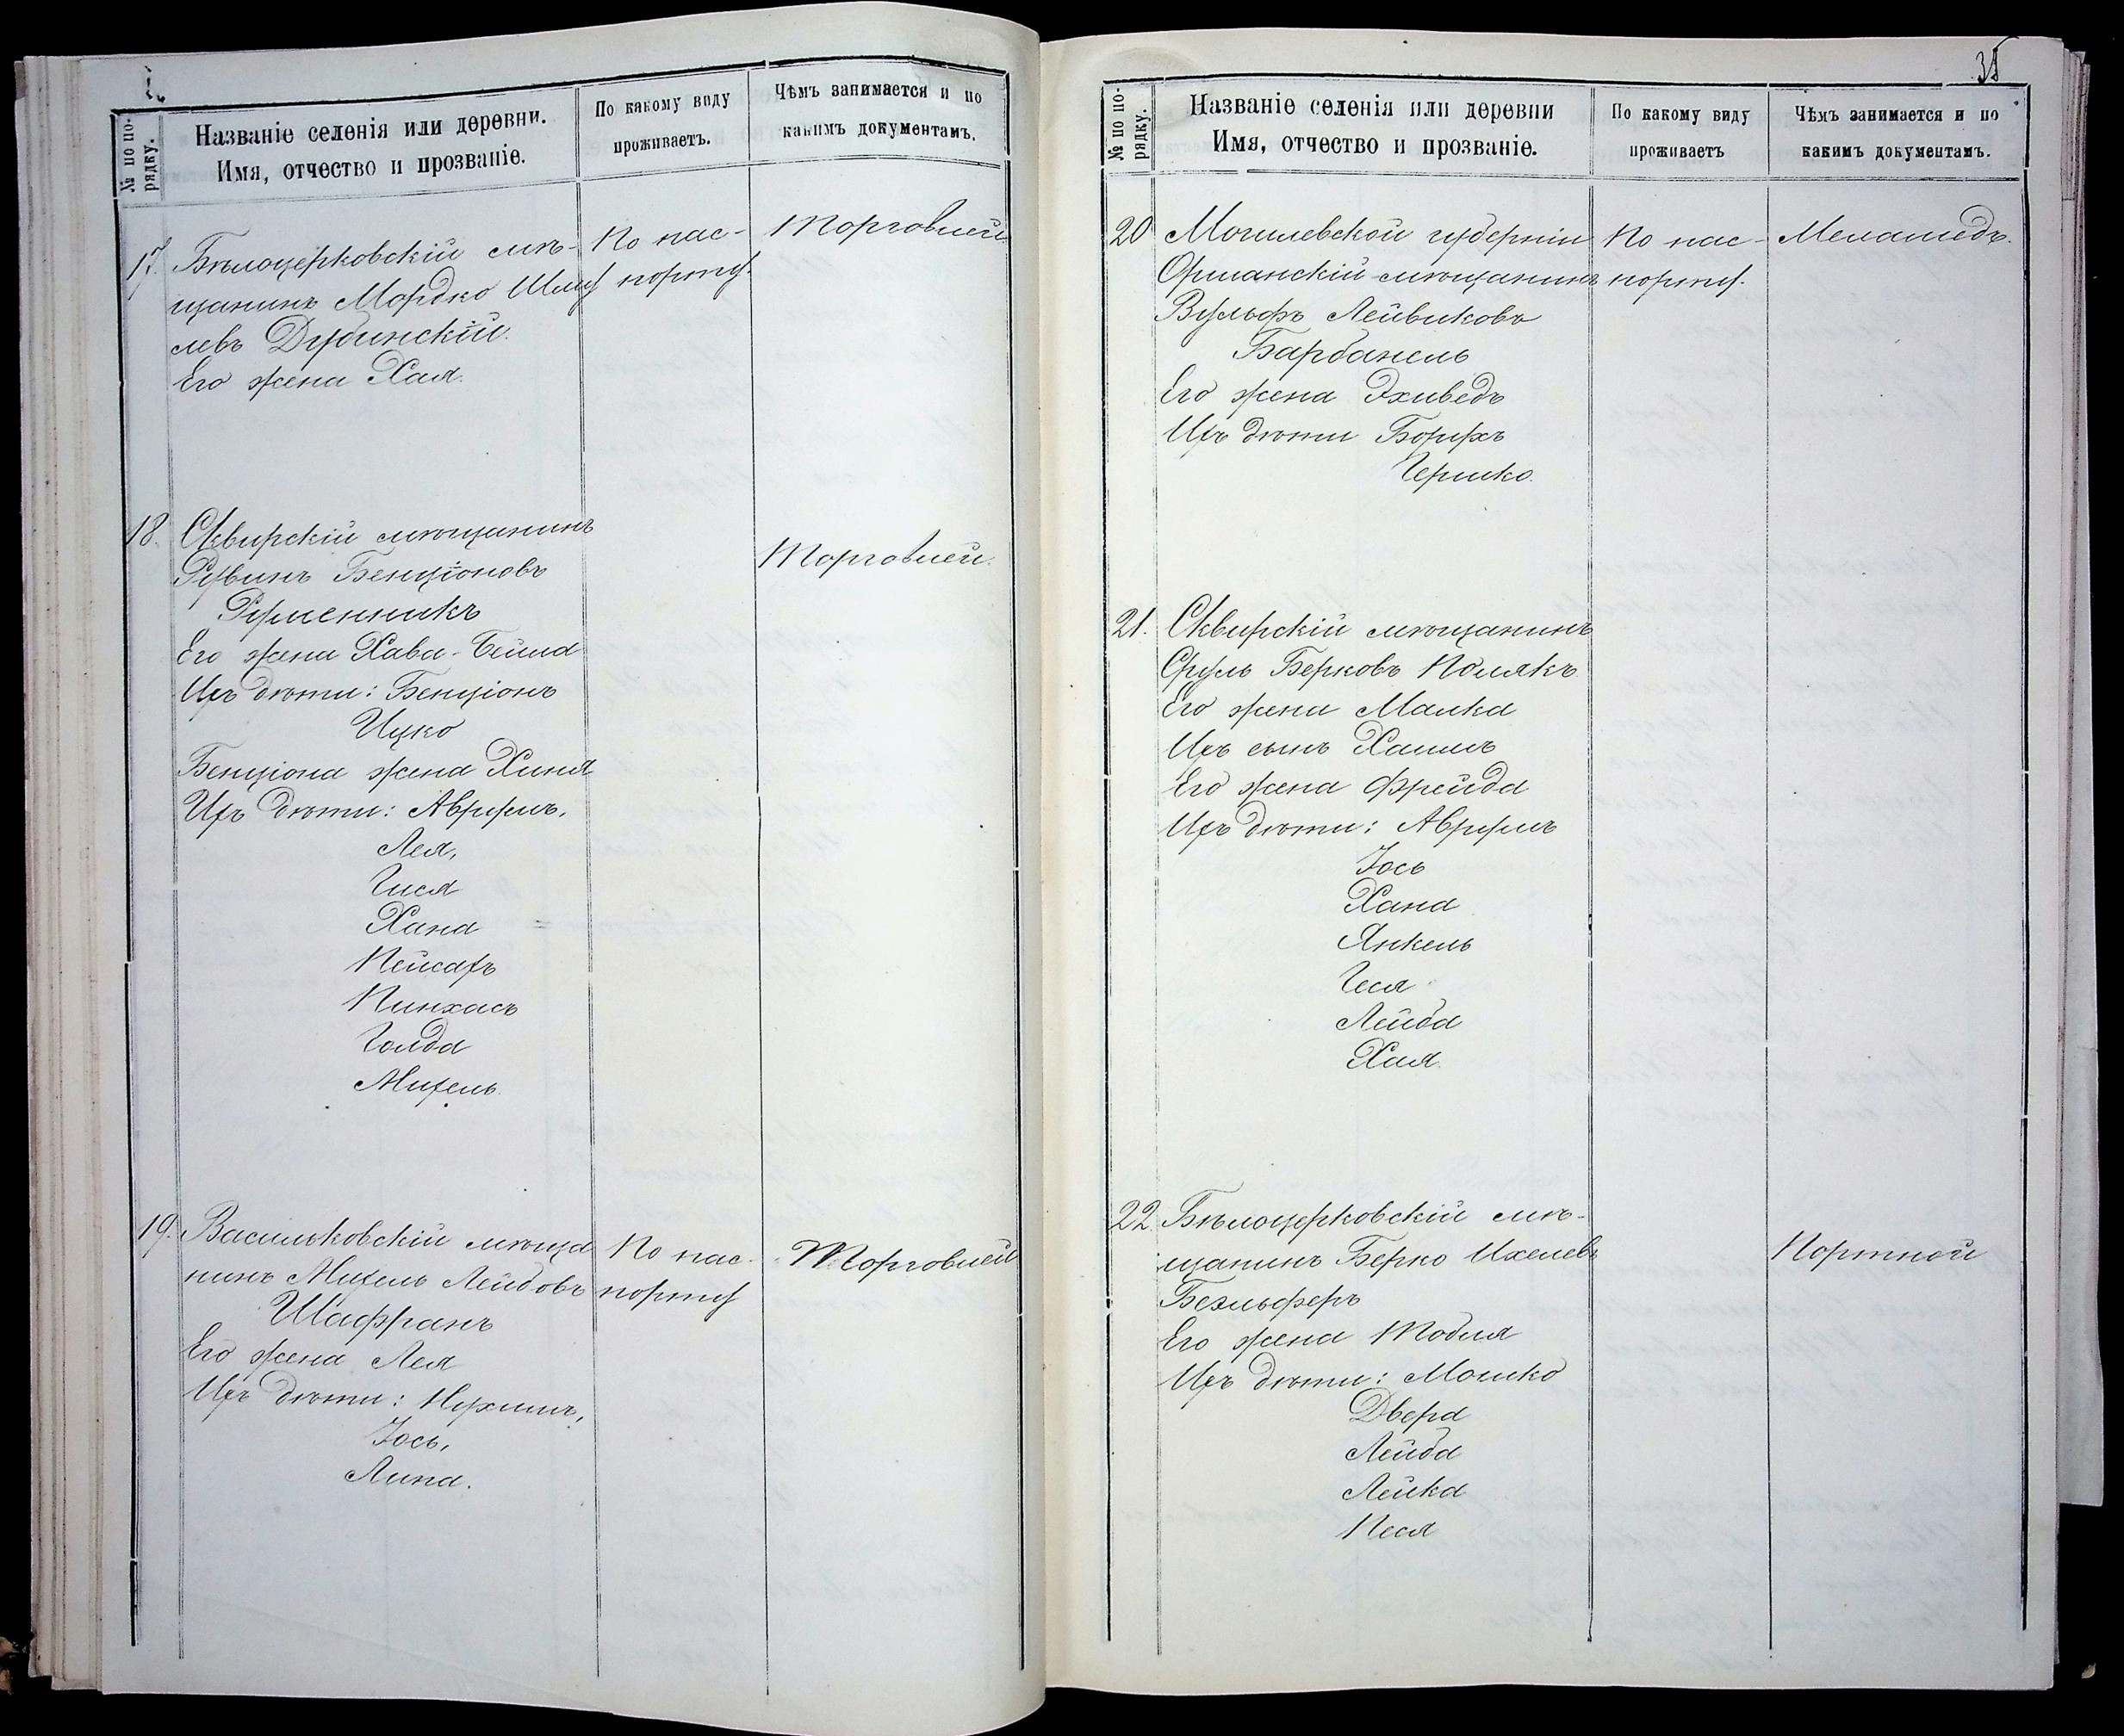 № по по-
рядку.
Названіе селенія или деревни.
Имя, отчество и прозваніе.
По какому виду
проживаетъ.
Чѣмъ занимается и по
какимъ документамъ.
17. Бѣлоцерковскій мѣ- По пас- Торговлей
щанинъ Мордко Шму порту.
левъ Дубинскій.
Его жена Хая.
18. Сквирскій мѣщанинъ
Рувинъ Бенціоновъ Торговлей.
Его жена Хава-Бейла
Ихъ дѣти: Бенціонъ
Ицко
Бенціона жена Хиня
Ихъ дѣти: Аврумъ,
Лея,
Гися
Хана
Пейсахъ
Пинхасъ
Голда
Михель.
19. Васильковскій мѣща По пас- Торговлей
нинъ Михель Лейбовъ порту
Шафранъ
Его жена Лея
Ихъ дѣти: Нухимъ,
Іось,
Липа.
35
№ по по-
рядку.
Названіе селенія или деревни
Имя, отчество и прозваніе.
По какому виду
проживаетъ
Чѣмъ занимается и по
какимъ документамъ.
20 Могилевской губерніи По пас- Меламедъ.
Оршанскій мѣщанинъ порту.
Вульфъ Лейвиковъ
Барбанель
Его жена Эхиведъ
Ихъ дѣти Борухъ
Гершко.
21. Сквирскій мѣщанинъ
Сруль Берковъ Полякъ
Его жена Малка
Ихъ сынъ Хаимъ
Его жена Фрейда
Ихъ дѣти: Аврумъ
Іось
Хана
Янкель
Геся
Лейба
Хая.
22. Бѣлоцерковскій мѣ-
щанинъ Берко Ихелевъ Портной
Бехльферъ
Его жена Тобля
Ихъ дѣти: Мошко
Двера
Лейба
Лейка
Песя